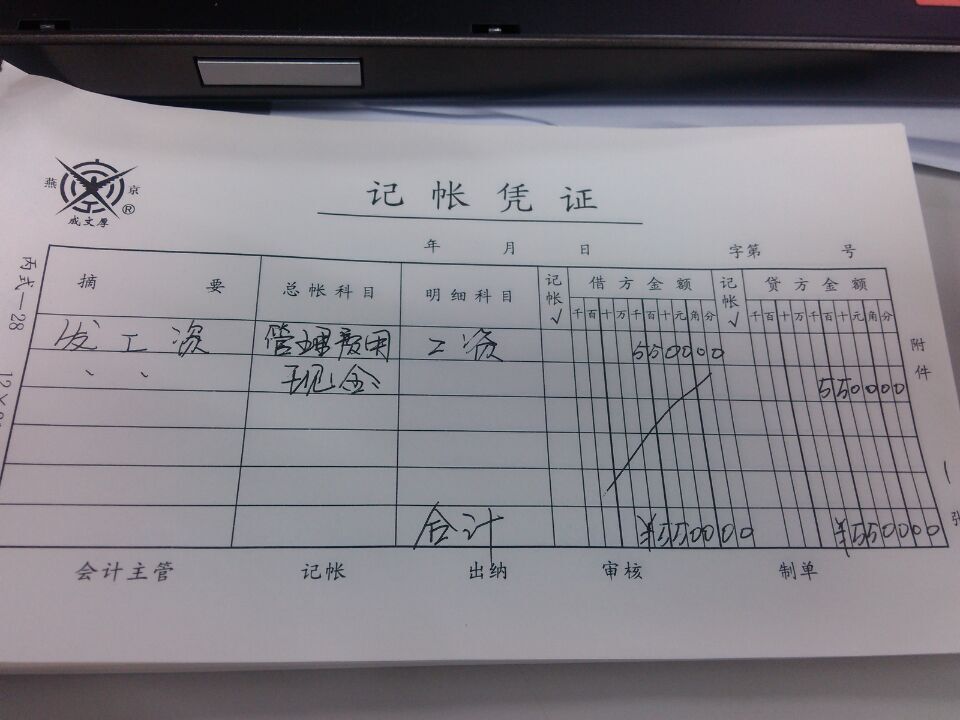 燕 京
®
成文厚
记帐凭证
年 月 日 字第 号
丙式—28
摘 要 总帐科目 明细科目 记帐√ 借方金额 记帐√ 贷方金额
千百十万千百十元角分 千百十万千百十元角分
发工资 管理费用 工资 550000
、、 现金 550000
合计 ¥550000 ¥550000
附件 1 张
会计主管 记帐 出纳 审核 制单